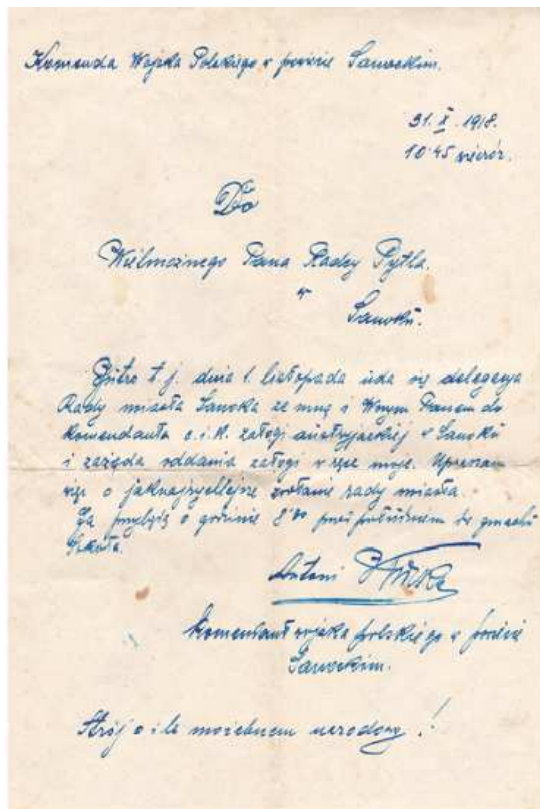 Komenda Wojska Polskiego w powiecie Sanockim.
31. X. 1918.
10.45 wieczór.
Do
Wielmożnego Pana Radcy Pytla.
w
Sanoku.
Jutro t. j. dnia 1. listopada uda się delegacya
Rady miasta Sanoka ze mną i Wnym Panem do
komendanta c. i k. załogi austryjackiej w Sanoku
i zażąda oddania załogi w ręce moje. Upraszam
więc o jaknajrychlejsze zwołanie rady miasta.
Ja przybędę o godzinie 8 00 przed południem do gmachu
Sokoła.
Antoni
Komendant wojska polskiego w powiecie
Sanockim.
Strój o ile możebnem narodowy!